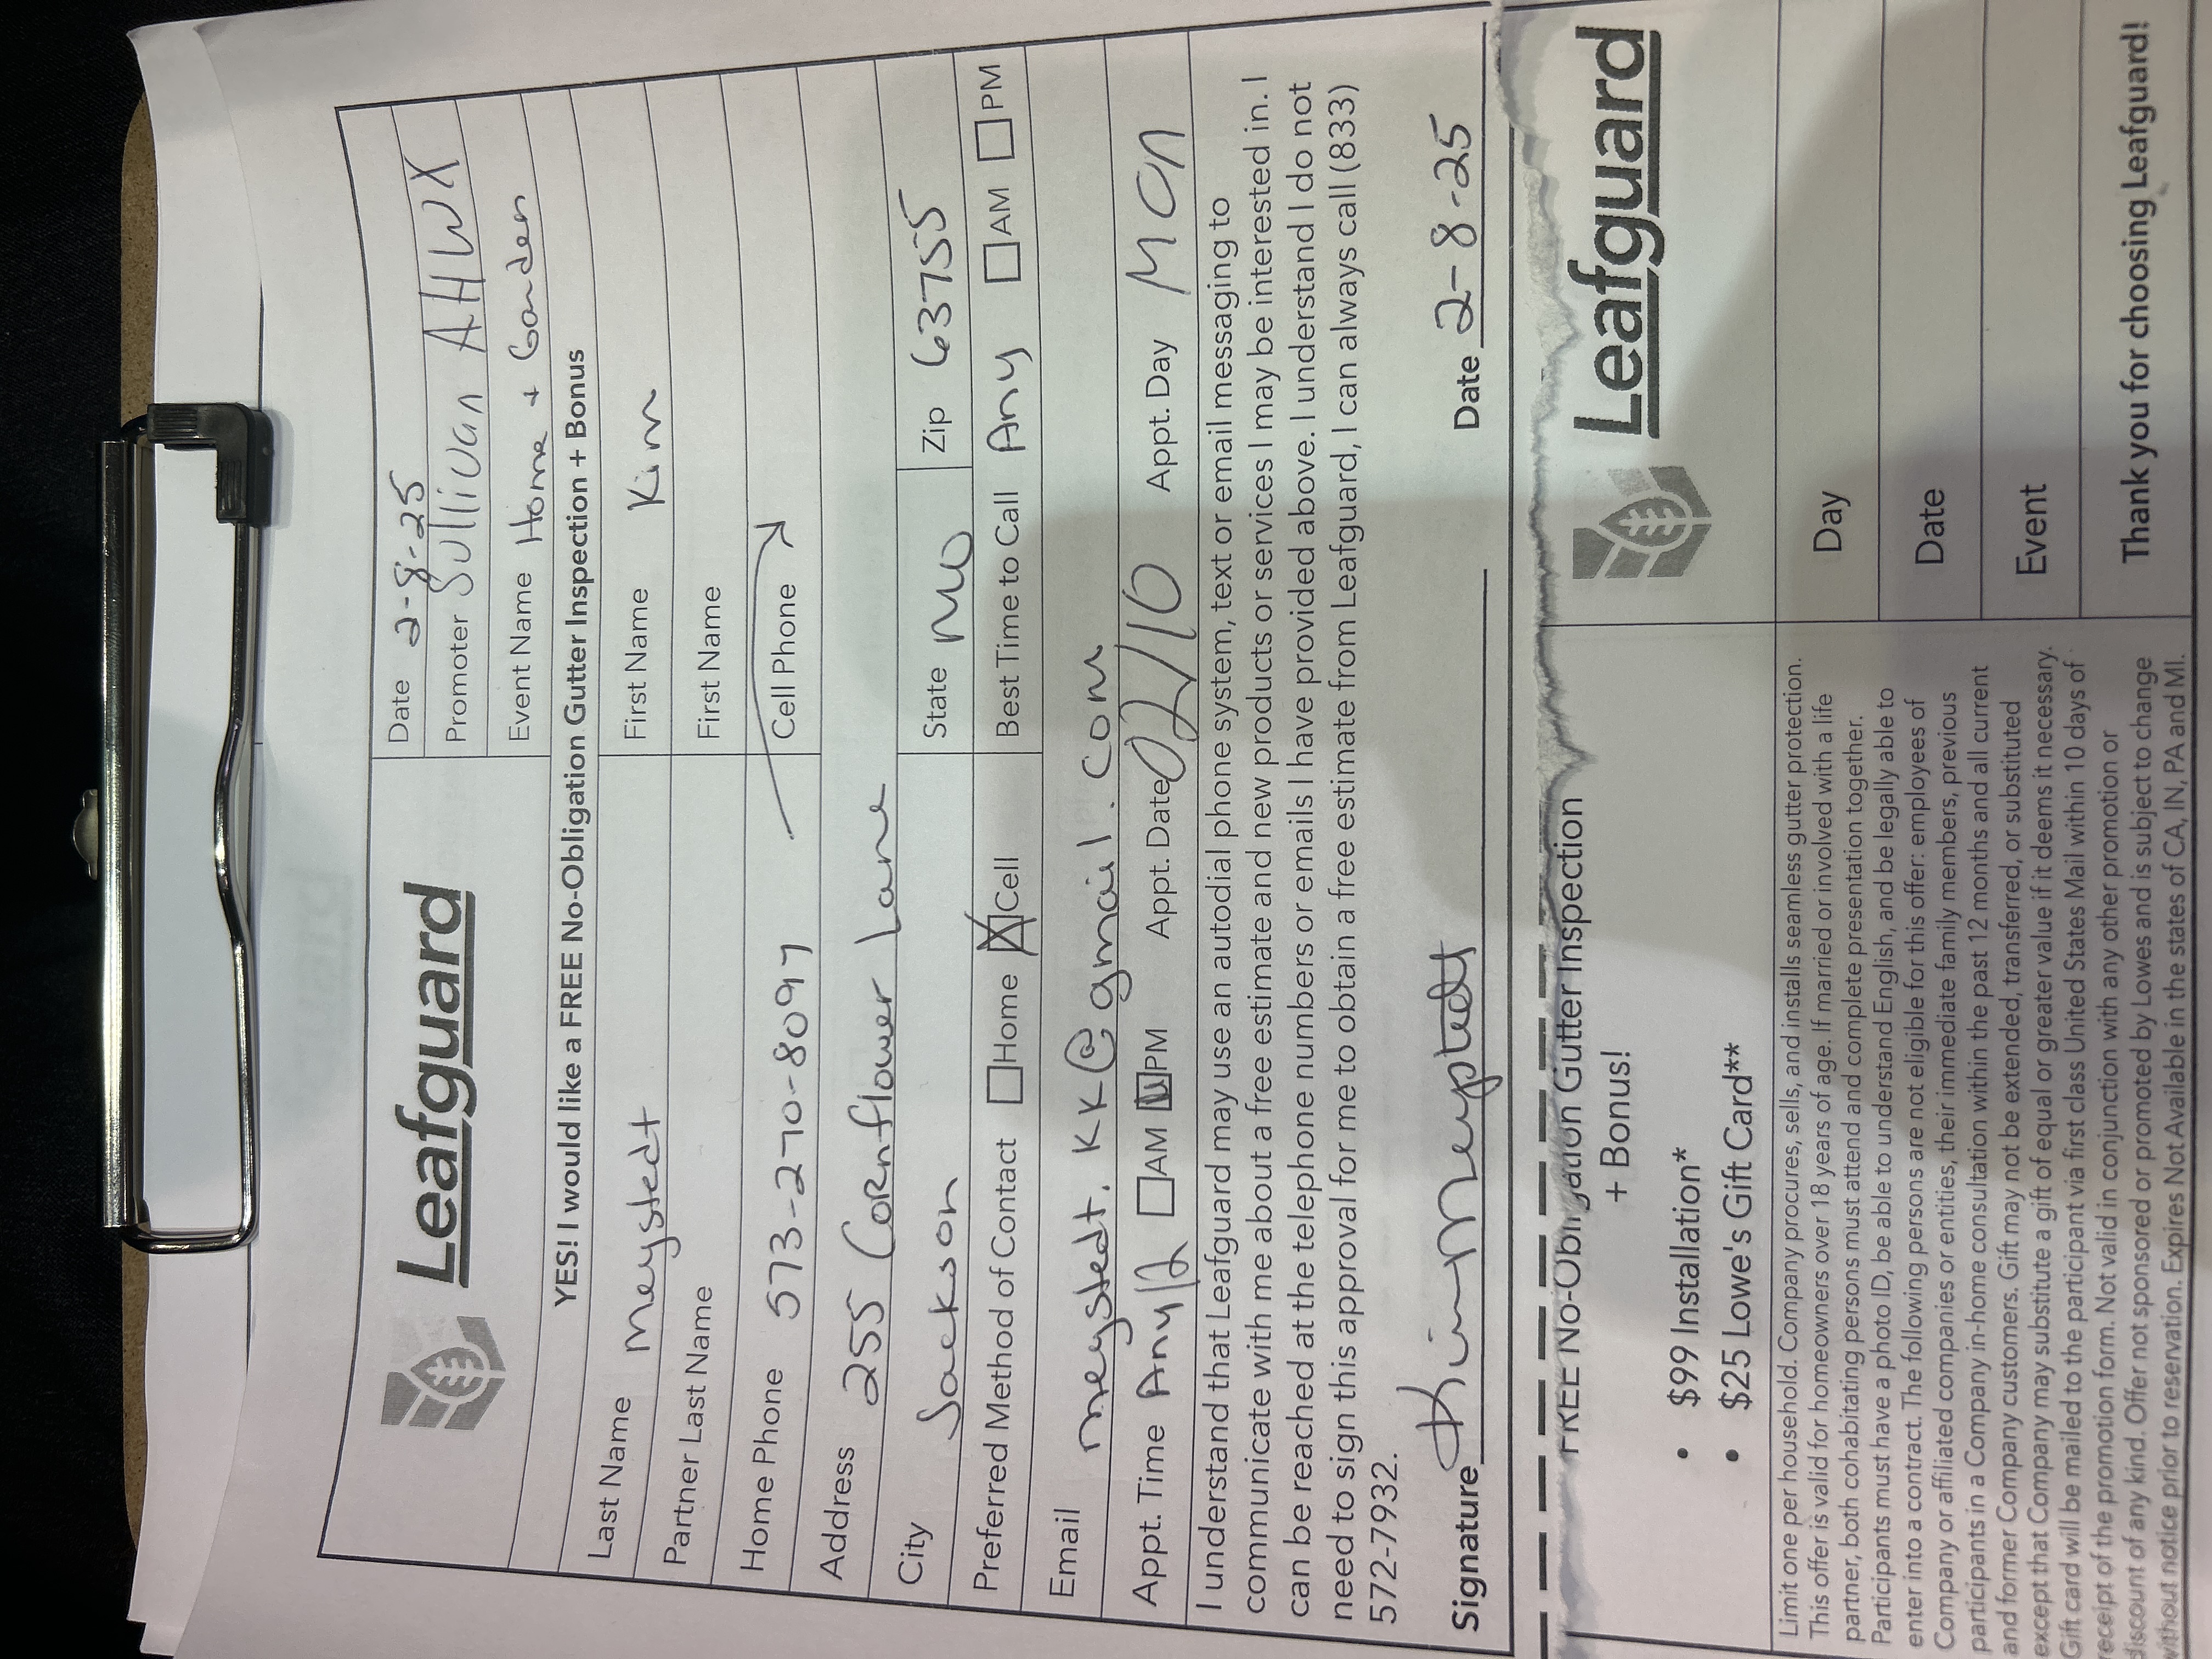 Leafguard
Date 2-8-25
Promoter Sullivan AHWX
Event Name Home + Garden
YES! I would like a FREE No-Obligation Gutter Inspection + Bonus
Last Name Meystedt First Name Kim
Partner Last Name First Name
Home Phone 573-270-8097 Cell Phone
Address 255 Cornflower Lane
City Jackson State MO Zip 63755
Preferred Method of Contact Home Cell Best Time to Call Any AM PM
Email meystedt.kk@gmail.com
Appt. Time Any/12 AM PM Appt. Date 02/10 Appt. Day Mon
I understand that Leafguard may use an autodial phone system, text or email messaging to
communicate with me about a free estimate and new products or services I may be interested in. I
can be reached at the telephone numbers or emails I have provided above. I understand I do not
need to sign this approval for me to obtain a free estimate from Leafguard, I can always call (833)
572-7932.
Signature Kim Meystedt Date 2-8-25
FREE No-Obligation Gutter Inspection
+ Bonus!
• $99 Installation*
• $25 Lowe's Gift Card**
Limit one per household. Company procures, sells, and installs seamless gutter protection.
This offer is valid for homeowners over 18 years of age. If married or involved with a life
partner, both cohabitating persons must attend and complete presentation together.
Participants must have a photo ID, be able to understand English, and be legally able to
enter into a contract. The following persons are not eligible for this offer: employees of
Company or affiliated companies or entities, their immediate family members, previous
participants in a Company in-home consultation within the past 12 months and all current
and former Company customers. Gift may not be extended, transferred, or substituted
except that Company may substitute a gift of equal or greater value if it deems it necessary.
Gift card will be mailed to the participant via first class United States Mail within 10 days of
receipt of the promotion form. Not valid in conjunction with any other promotion or
discount of any kind. Offer not sponsored or promoted by Lowes and is subject to change
without notice prior to reservation. Expires Not Available in the states of CA, IN, PA and MI.
Leafguard
Day
Date
Event
Thank you for choosing Leafguard!